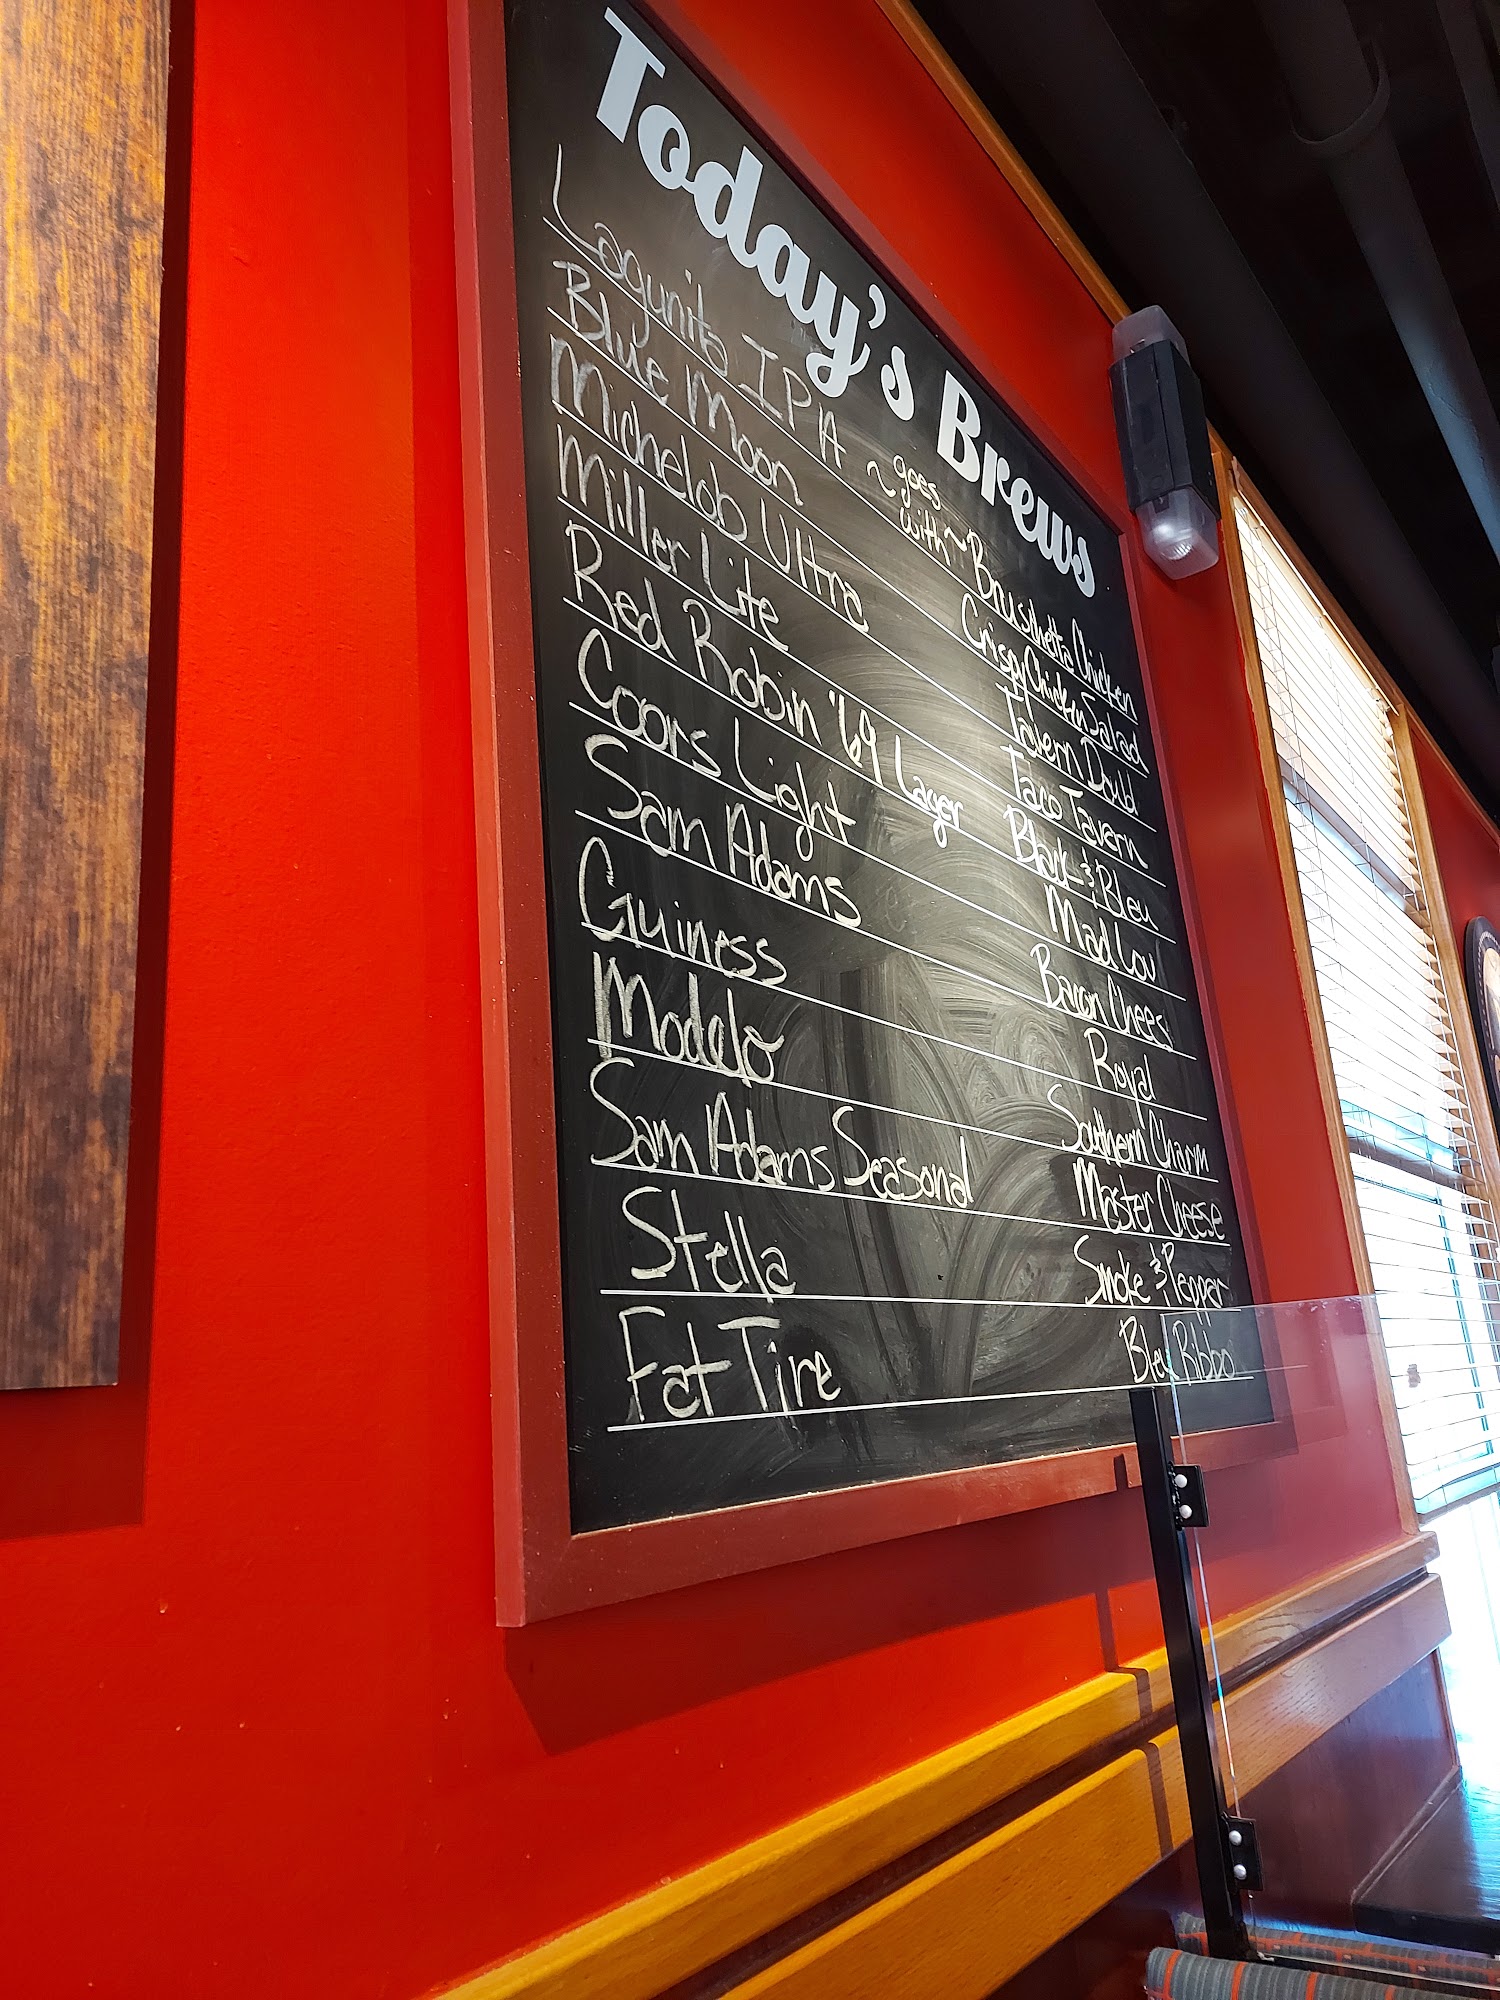 Today's Brews
Lagunits IPA ~ goes with ~ Bruschetta Chicken
Blue Moon Crispy Chicken Salad
Michelob Ultra Tavern Doubl
Miller Lite Taco Tavern
Red Robin '69 Lager Black & Bleu
Coors Light Mad Lov
Sam Adams Bacon Chees
Guiness Royal
Modelo Southern Charm
Sam Adams Seasonal Master Cheese
Stella Smoke & Pepper
Fat Tire Bleu Ribbo